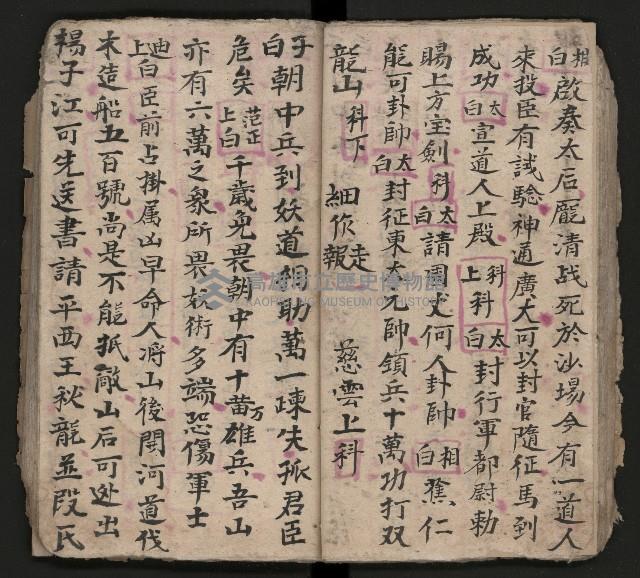 相白啟奏太后龐清战死於沙場今有一道人
來投臣有試驗神通廣大可以封官隨征馬到
成功太白宣道人上殿科上科太白封行軍都尉勅
賜上方宝劍科太白請國丈何人卦帥相白蕉仁
能可卦帥太白封征東大元帥領兵十萬功打双
龍山科下 細作走報 慈雲上科
子白朝中兵到妖道相助萬一踈失孤君臣
危矣范正上白千歲免畏朝中有十萬雄兵吾山
亦有六萬之衆所畏妖術多端恐傷軍士
迪白臣前占掛属凶早命人滸山後開河道伐
木造船五百號尚是不能抵敵山后可迯出
揚子江可先送書請平西王狄龍並段氏
高雄市立歷史博物館
KAOHSIUNG MUSEUM OF HISTORY